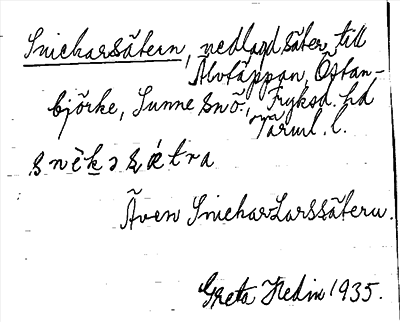 Snickarsätern, nedlagd säter till
Älvtäppan, Östan-
björke, Sunne snö., Fryksd. hd
Värml. l.
snèkəsǽtra
Även SnickarLarssätern.
Greta Hedin 1935.